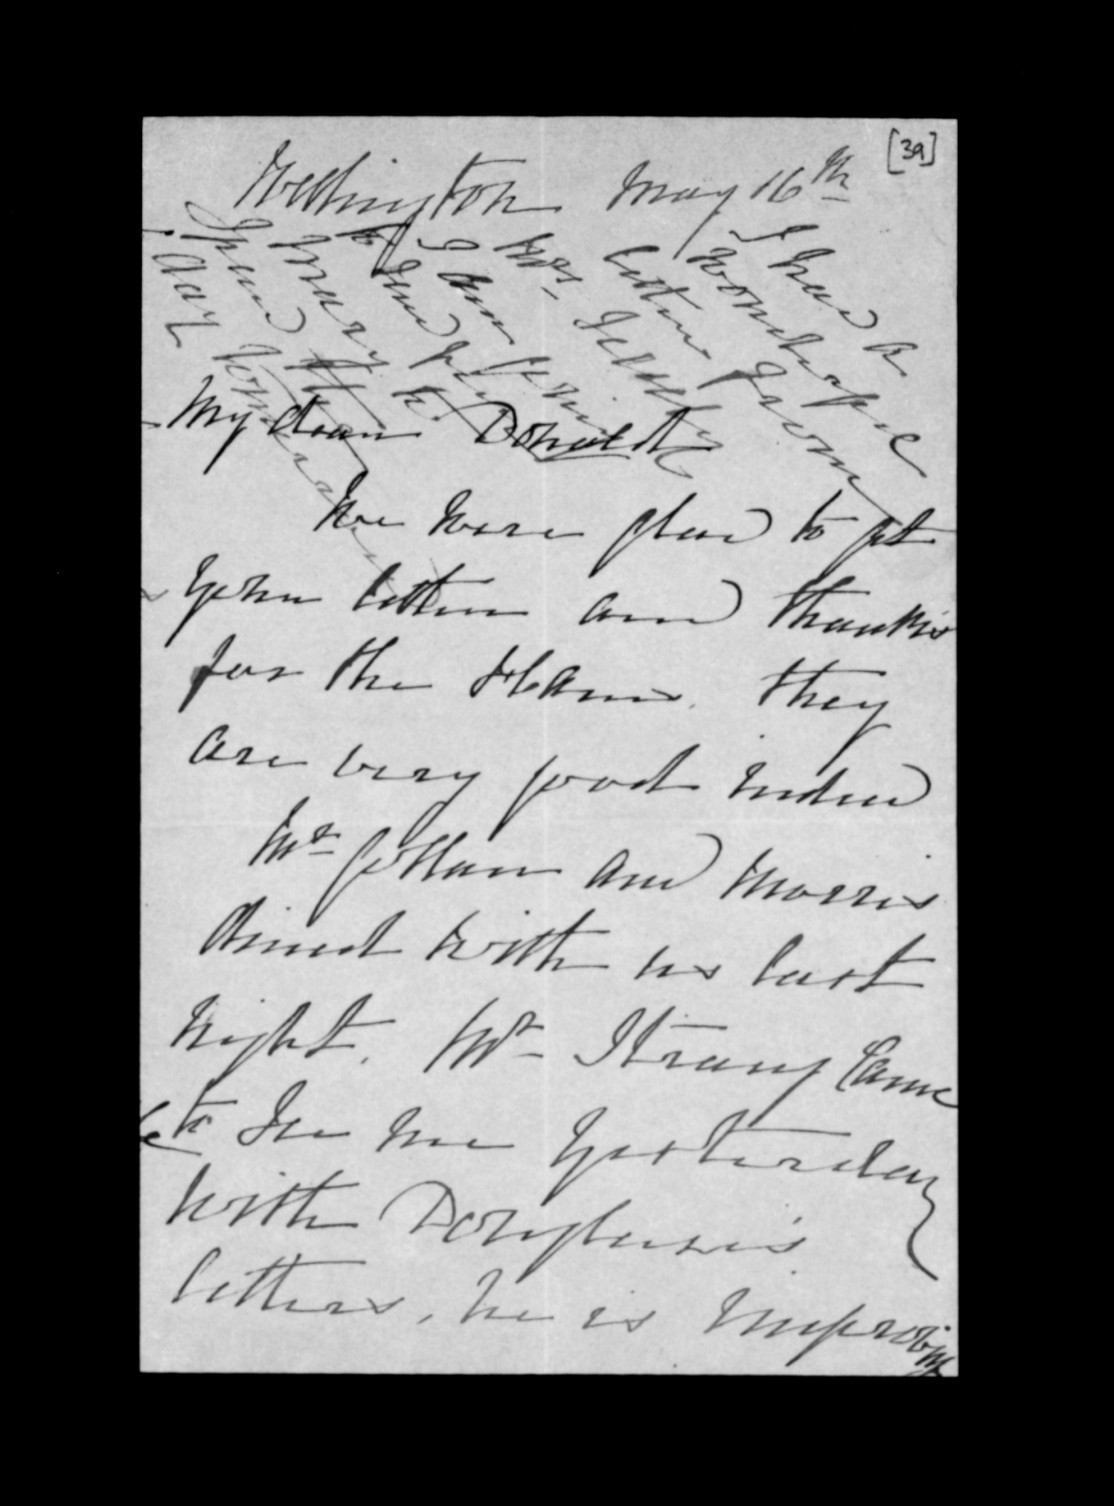 [39]
Wellington May 16th
I had a
wonderful
letter from
Mrs Tetley
I am
to send
Mary to
day
My dear Donald
We were glad to get
your letter and thanks
for the Hams. they
are very good indeed
Mr Gollan and Morris
dined with us last
night. Mr Strang came
to see me yesterday
with Douglas's
letters, he is improving